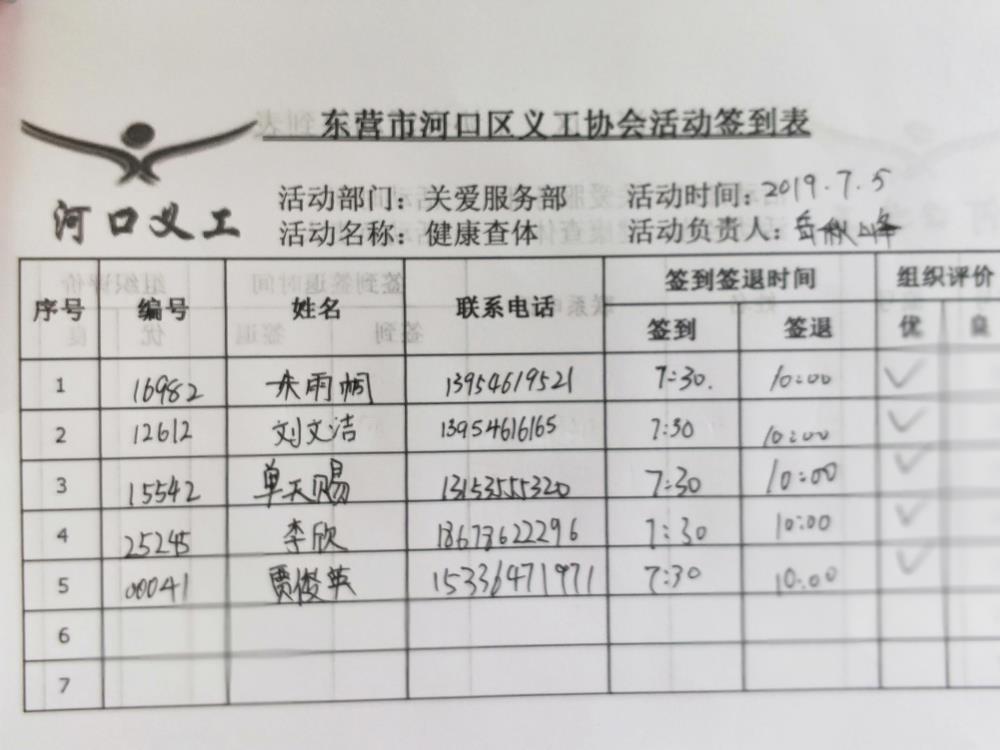 东营市河口区义工协会活动签到表
河口义工
活动部门：关爱服务部 活动时间：2019.7.5
活动名称：健康查体 活动负责人：
序号 编号 姓名 联系电话 签到签退时间 组织评价
签到 签退 优 良
1 16982 雨桐 13954619521 7:30. 10:00 ✓
2 12612 刘文洁 13954616165 7:30 10:00 ✓
3 15542 单天赐 13153555320 7:30 10:00 ✓
4 25245 李欣 18673622296 7:30 10:00 ✓
5 00041 贾俊英 15336471971 7:30 10:00 ✓
6
7